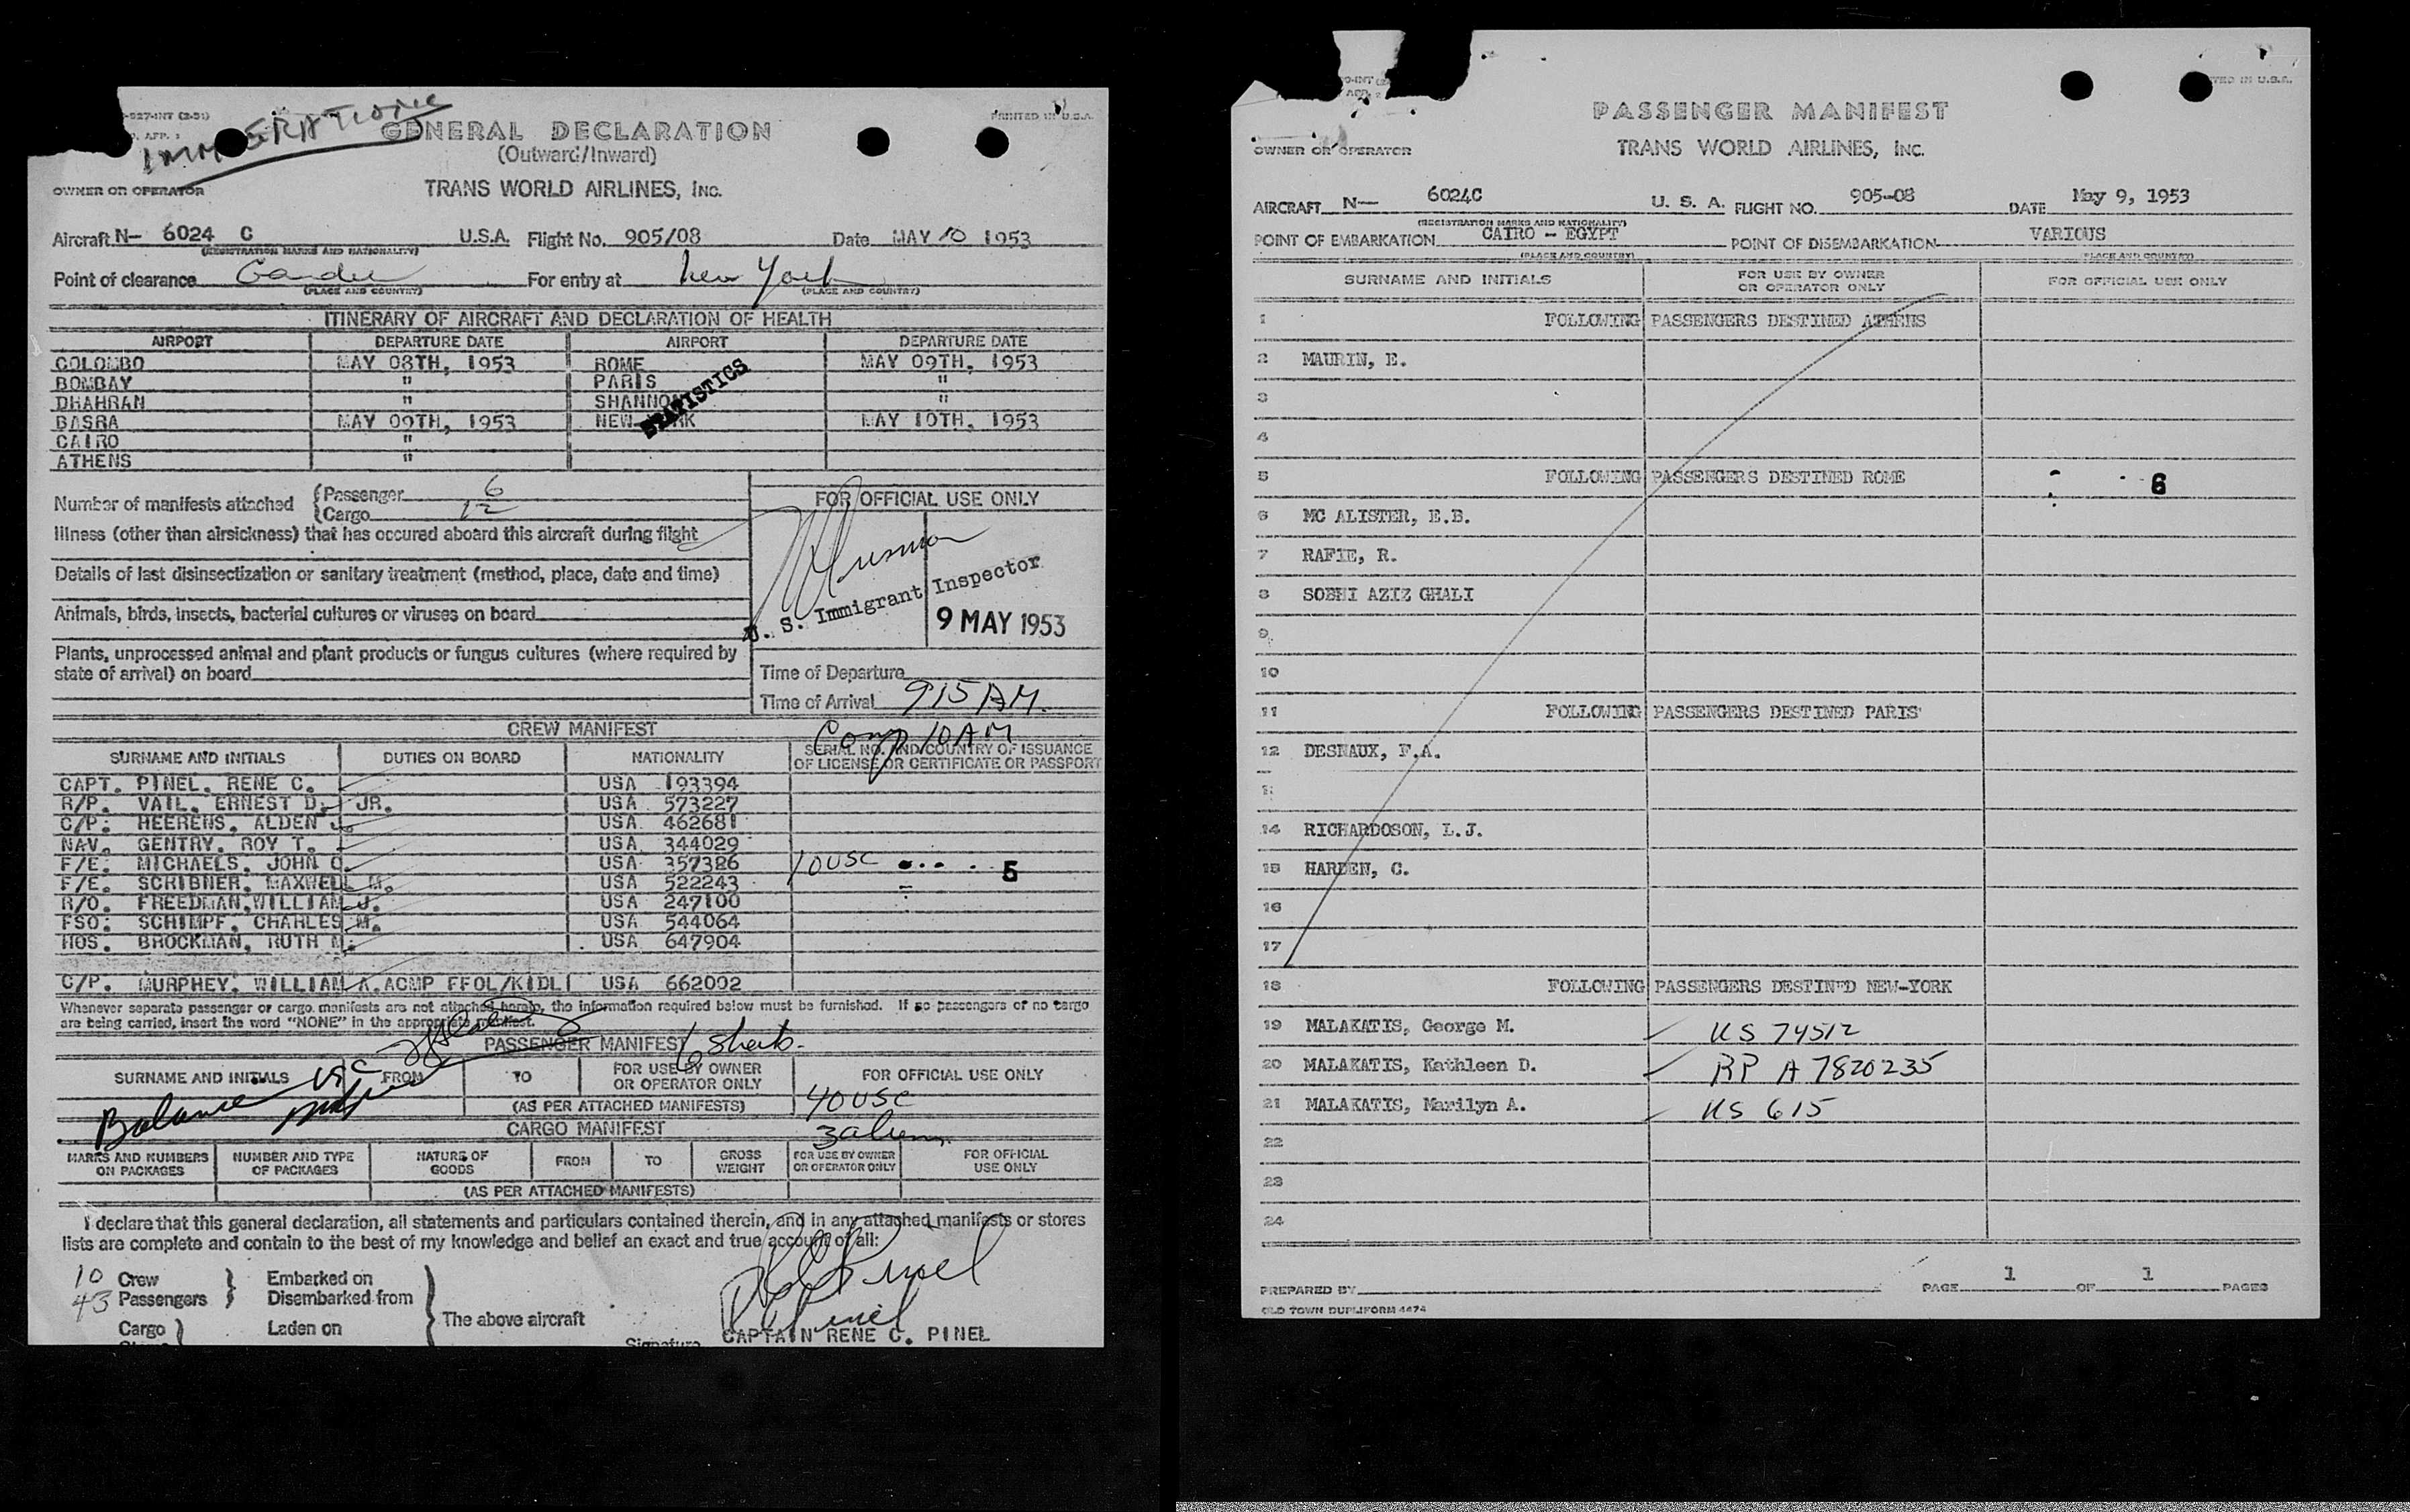 IMMIGRATION
-027-INT (2-51)
PRINTED IN U.S.A.
GENERAL DECLARATION
(Outward/Inward)
OWNER OR OPERATOR
TRANS WORLD AIRLINES, INC.
Aircraft N- 6024 C U.S.A. Flight No. 905/08 Date MAY 10 1953
(REGISTRATION MARKS AND NATIONALITY)
Point of clearance Gander For entry at New York
(PLACE AND COUNTRY) (PLACE AND COUNTRY)
ITINERARY OF AIRCRAFT AND DECLARATION OF HEALTH
AIRPORT DEPARTURE DATE AIRPORT DEPARTURE DATE
COLOMBO MAY 08TH, 1953 ROME MAY 09TH, 1953
BOMBAY " PARIS "
DHAHRAN " SHANNON "
BASRA MAY 09TH, 1953 NEW YORK MAY 10TH, 1953
CAIRO "
ATHENS "
STATISTICS
Number of manifests attached {Passenger 6
{Cargo 12
FOR OFFICIAL USE ONLY
Illness (other than airsickness) that has occured aboard this aircraft during flight
Details of last disinsectization or sanitary treatment (method, place, date and time)
U. S. Immigrant Inspector
9 MAY 1953
Animals, birds, insects, bacterial cultures or viruses on board
Plants, unprocessed animal and plant products or fungus cultures (where required by
state of arrival) on board
Time of Departure
Time of Arrival 915 AM.
Comp 10 AM
CREW MANIFEST
SURNAME AND INITIALS DUTIES ON BOARD NATIONALITY SERIAL NO. AND COUNTRY OF ISSUANCE
OF LICENSE OR CERTIFICATE OR PASSPORT
CAPT. PINEL, RENE C. USA 193394
R/P. VAIL, ERNEST D. JR. USA 573227
C/P: HEERENS, ALDEN J. USA 462681
NAV. GENTRY, ROY T. USA 344029
F/E. MICHAELS, JOHN C. USA 357386 10 USC 5
F/E. SCRIBNER, MAXWELL M. USA 522243
R/O. FREEDMAN, WILLIAM J. USA 247100
FSO: SCHIMPF, CHARLES M. USA 544064
HOS. BROCKMAN, RUTH M. USA 647904
C/P. MURPHEY, WILLIAM A. ACMP FFOL/KIDLI USA 662002
Whenever separate passenger or cargo manifests are not attached hereto, the information required below must be furnished. If no passengers or no cargo
are being carried, insert the word "NONE" in the appropriate manifest.
PASSENGER MANIFEST 6 Sheets
SURNAME AND INITIALS FROM TO FOR USE BY OWNER
OR OPERATOR ONLY FOR OFFICIAL USE ONLY
Balance USC
(AS PER ATTACHED MANIFESTS) 40 USC
3 aliens
CARGO MANIFEST
MARKS AND NUMBERS
ON PACKAGES NUMBER AND TYPE
OF PACKAGES NATURE OF
GOODS FROM TO GROSS
WEIGHT FOR USE BY OWNER
OR OPERATOR ONLY FOR OFFICIAL
USE ONLY
(AS PER ATTACHED MANIFESTS)
I declare that this general declaration, all statements and particulars contained therein, and in any attached manifests or stores
lists are complete and contain to the best of my knowledge and belief an exact and true account of all:
10 Crew } Embarked on
43 Passengers } Disembarked from
The above aircraft
Cargo } Laden on
Signature CAPTAIN RENE C. PINEL
PASSENGER MANIFEST
OWNER OR OPERATOR
TRANS WORLD AIRLINES, INC.
AIRCRAFT N- 6024C U. S. A. FLIGHT NO. 905-08 DATE May 9, 1953
(REGISTRATION MARKS AND NATIONALITY)
POINT OF EMBARKATION CAIRO - EGYPT POINT OF DISEMBARKATION VARIOUS
(PLACE AND COUNTRY) (PLACE AND COUNTRY)
SURNAME AND INITIALS FOR USE BY OWNER
OR OPERATOR ONLY FOR OFFICIAL USE ONLY
1 FOLLOWING PASSENGERS DESTINED ATHENS
2 MAURIN, E.
3
4
5 FOLLOWING PASSENGERS DESTINED ROME 6
6 MC ALISTER, E.B.
7 RAFIE, R.
8 SOBHI AZIZ GHALI
9
10
11 FOLLOWING PASSENGERS DESTINED PARIS
12 DESNAUX, F.A.
14 RICHARDOSON, L.J.
15 HARDEN, C.
16
17
18 FOLLOWING PASSENGERS DESTINED NEW-YORK
19 MALAKATIS, George M. US 74512
20 MALAKATIS, Kathleen D. RP A 7820235
21 MALAKATIS, Marilyn A. US 615
22
23
24
PREPARED BY PAGE 1 OF 1 PAGES
OLD TOWN DUPLIFORM 4474